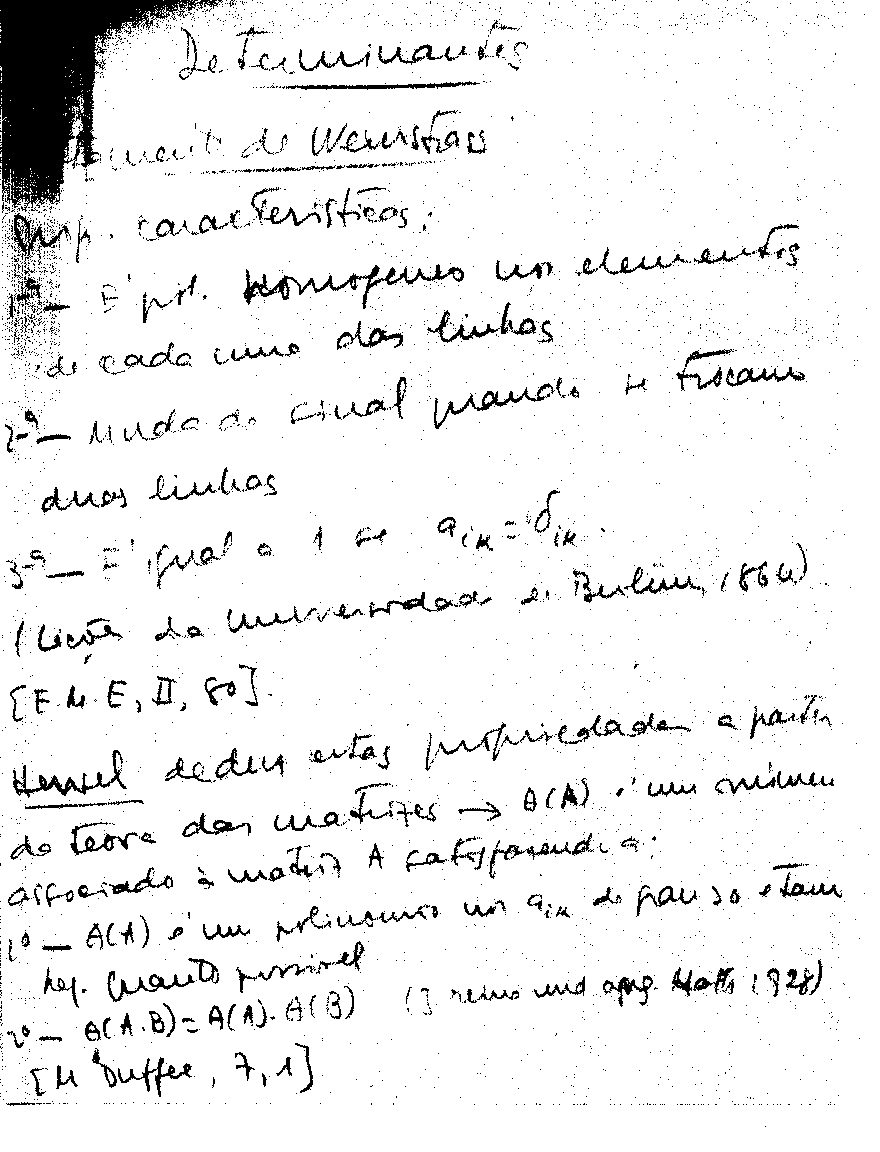 Determinantes
de Weierstrass
Prop. características:
1ª — É pol. Homogeneo nos elementos
de cada uma das linhas
2ª — Muda de sinal quando se trocam
duas linhas
3ª — É igual a 1 se a_ik = δ_ik.
(Lições da Universidade de Berlim, 1864)
[E.M.E, II, 80].
Hensel deduz estas propriedades a partir
da teoria das matrizes → θ(A) é um número
associado à matriz A satisfazendo a:
1º — θ(A) é um polinomio nos a_ik de grau >0 e tam
quanto possivel
2º — θ(A.B) = θ(A). θ(B) (J reine und ang. Math 1928)
[Mc Duffee, 7, 1]